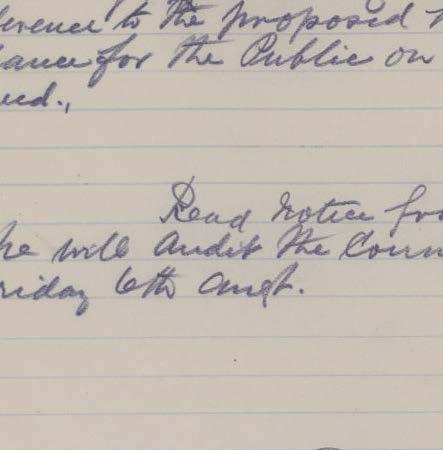 erence to the proposed
ance for the Public on
ed.,
Read notice fro
he will audit the Coun
riday 6th Augt.